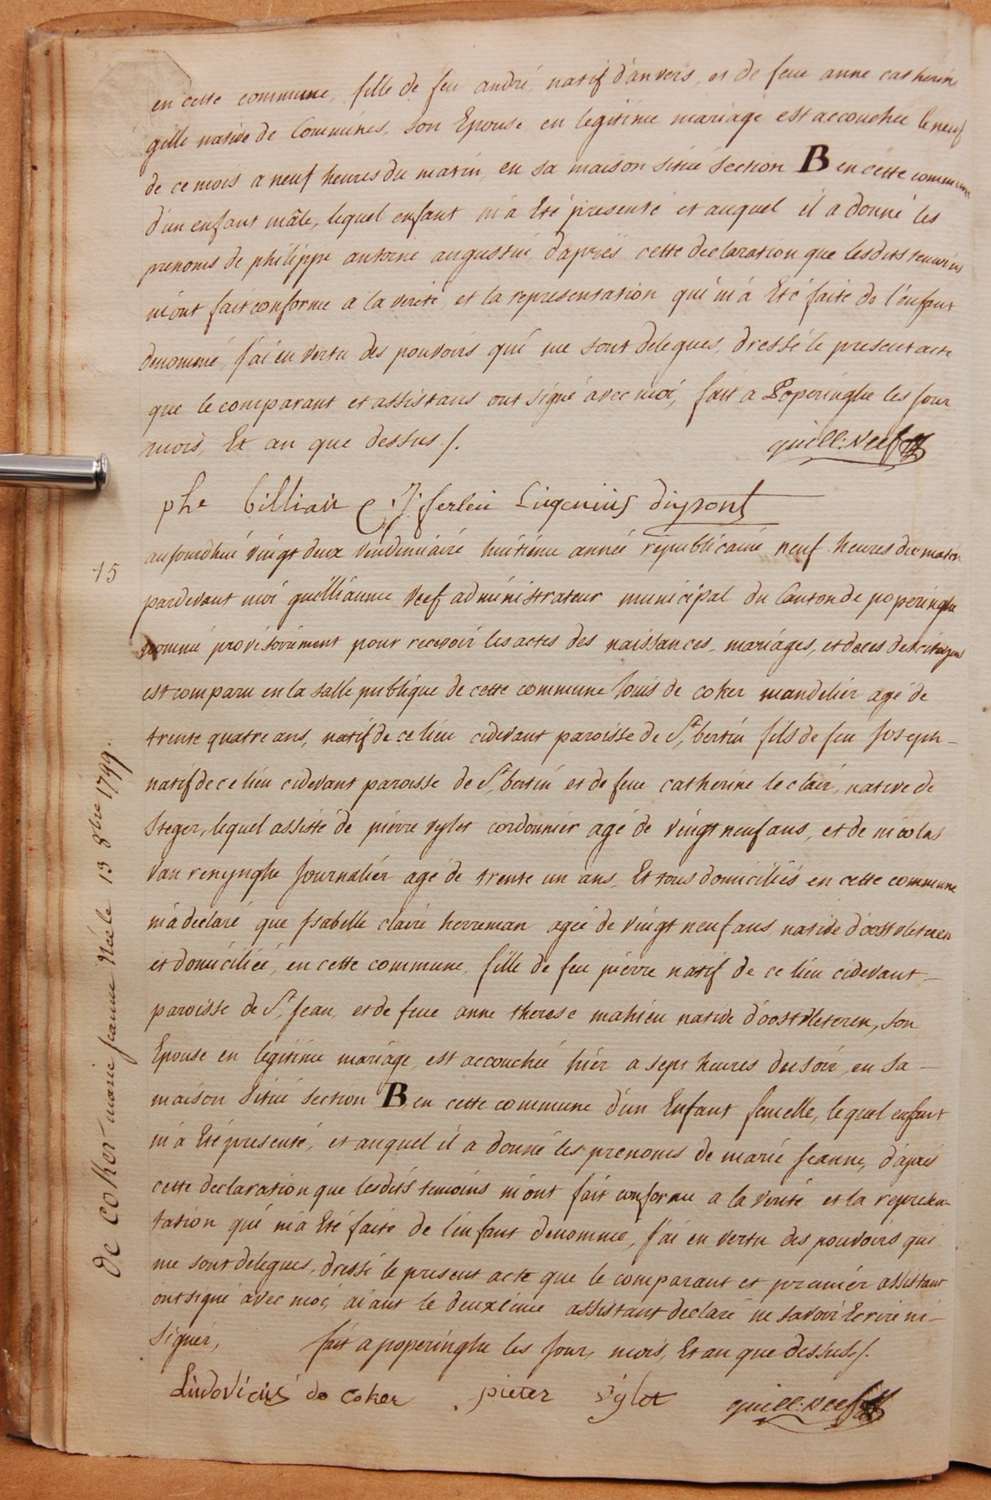 en cette commune, fille de feu andré natif d'anvers, et de feue anne catherine
gille native de Commines, son Epouse en legitime mariage est accouchée le neuf
de ce mois a neuf heures du matin, en sa maison situé section B en cette commune
d'un enfant mâle, lequel enfant m'a Eté presenté et auquel il a donné les
prenoms de philippe antoine augustin d'aprés cette declaration que lesdits temoins
m'ont fait conforme a la verité et la representation qui m'a Eté faite de l'enfant
denommé, j'ai en vertu des pouvoirs qui me sont delegués, dressé le present acte
que le comparant et assistans ont signé avec moi, fait a Poperinghe les jour
mois, Et an que dessus /.
guill: Neef
phe Gillian J: ferlein Eugenius dupont
15
aujourdhui vingt deux vendemiaire huitieme année republicaine neuf heures du matin
pardevant moi guilliaume Neef administrateur municipal du Canton de poperinghe
nommé provisoirement pour recevoir les actes des naissances, mariages, et deces des citoyens
est comparu en la salle publique de cette commune Louis de coker mandelier agé de
trente quatre ans, natif de ce lieu cidevant paroisse de St. bertin fils de feu Joseph
natif de ce lieu cidevant paroisse de St. bertin et de feue catherine le clair, native de
Steger, lequel assisté de pierre vylet cordonnier agé de vingt neuf ans, et de nicolas
van renynghe journalier agé de trente un ans, Et tous domiciliés en cette commune
m'a declaré que Isabelle claire herreman ageé de vingt neuf ans, native d'oostvleteren
et domiciliée, en cette commune, fille de feu pierre natif de ce lieu cidevant
paroisse de St. jean, et de feue anne therese mahieu native d'oostvleteren, son
Epouse en legitime mariage, est accouchée hier a sept heures du soir, en sa
maison situé section B en cette commune d'un Enfant femelle, lequel enfant
m'a Eté presenté, et auquel il a donné les prenoms de marie Jeanne, d'aprés
cette declaration que lesdits temoins m'ont fait conforme a la verité et la represen-
tation qui m'a Eté faite de l'enfant denommé, j'ai en vertu des pouvoirs qui
me sont delegués, dressé le present acte que le comparant et premier assistant
ont signé avec moi, aiant le deuxieme assistant declaré ne savoir Ecrire ni
signer, fait a poperinghe les jour, mois, Et an que dessus /.
Ludovicus de coker pieter vylet guill: Neef
de coker marie jeanne Née le 13 8bre 1799.